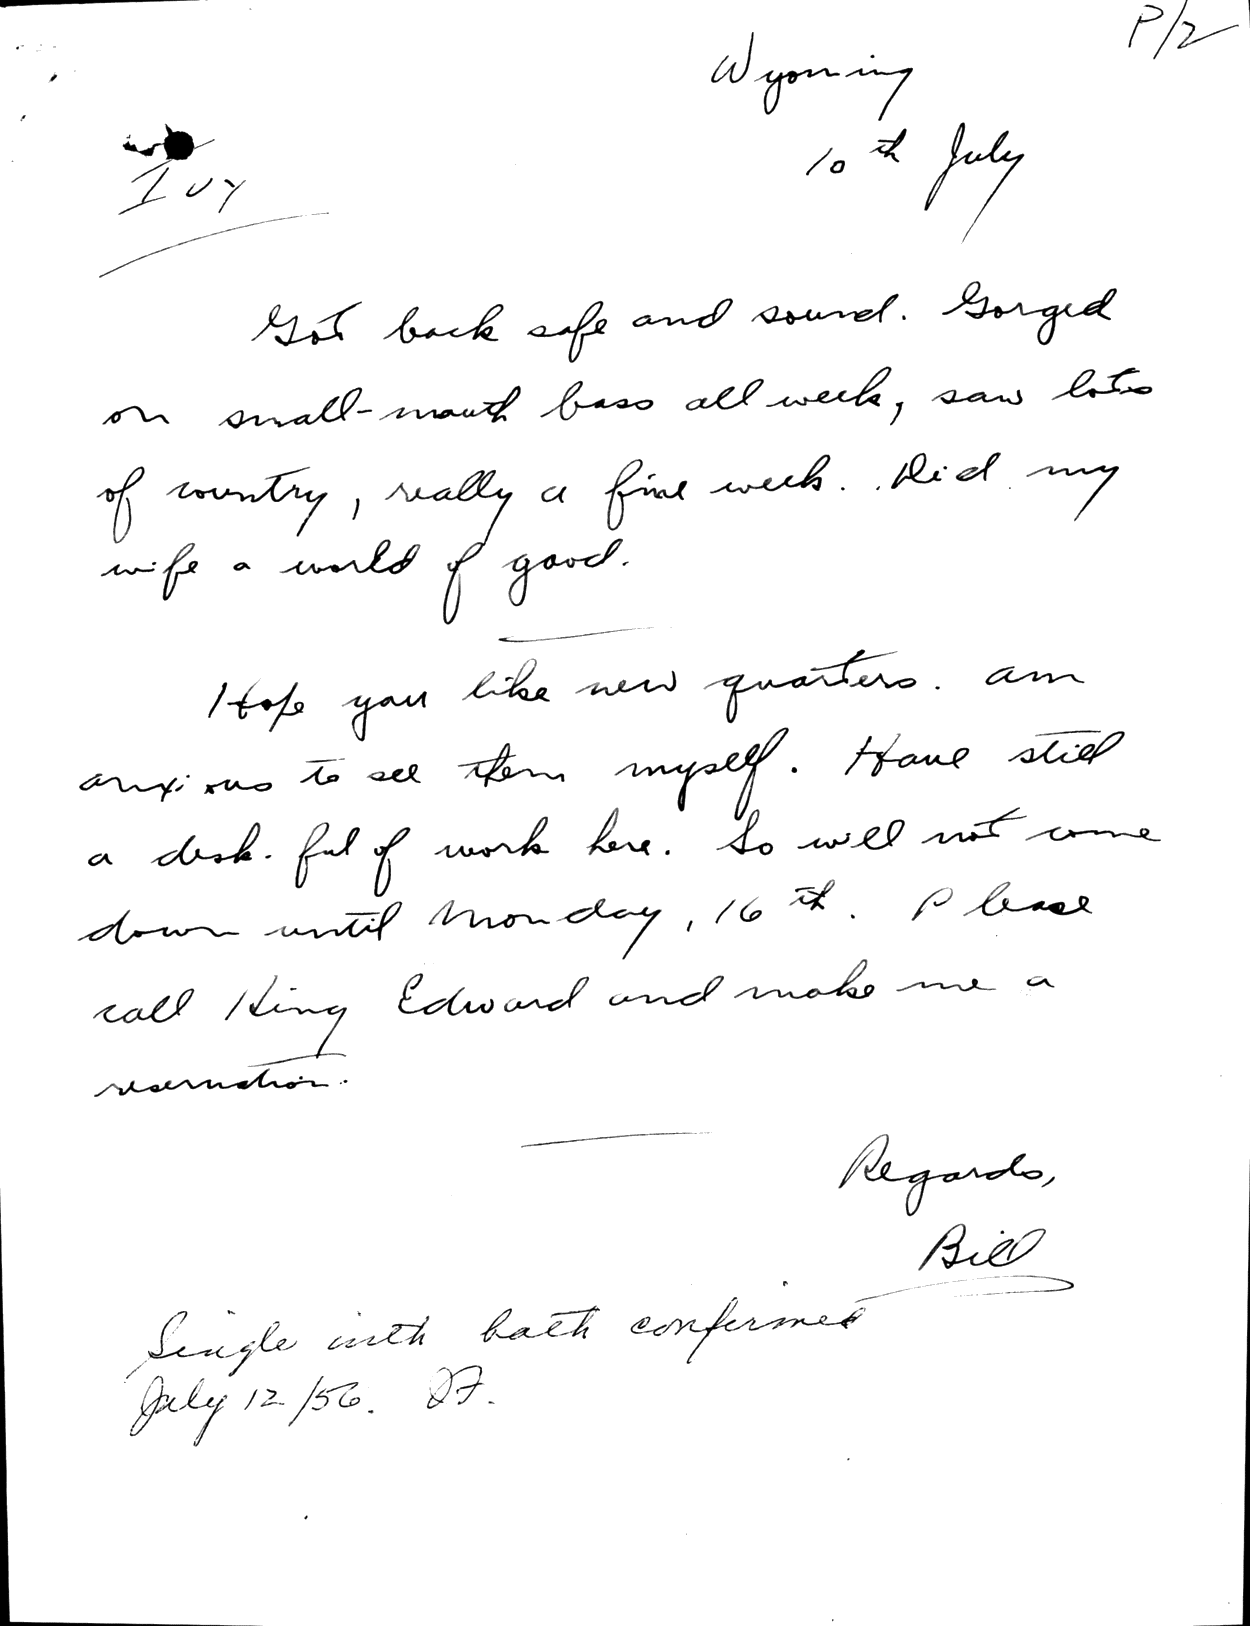 P/2
Wyoming
10th July
Ivy
Got back safe and sound. Gorged
on small-mouth bass all week, saw lots
of country, really a fine week. Did my
wife a world of good.
Hope you like new quarters. Am
anxious to see them myself. Have still
a desk-ful of work here. So will not come
down until Monday, 16th. Please
call King Edward and make me a
reservation.
Regards,
Bill
Single with bath confirmed
July 12/56.